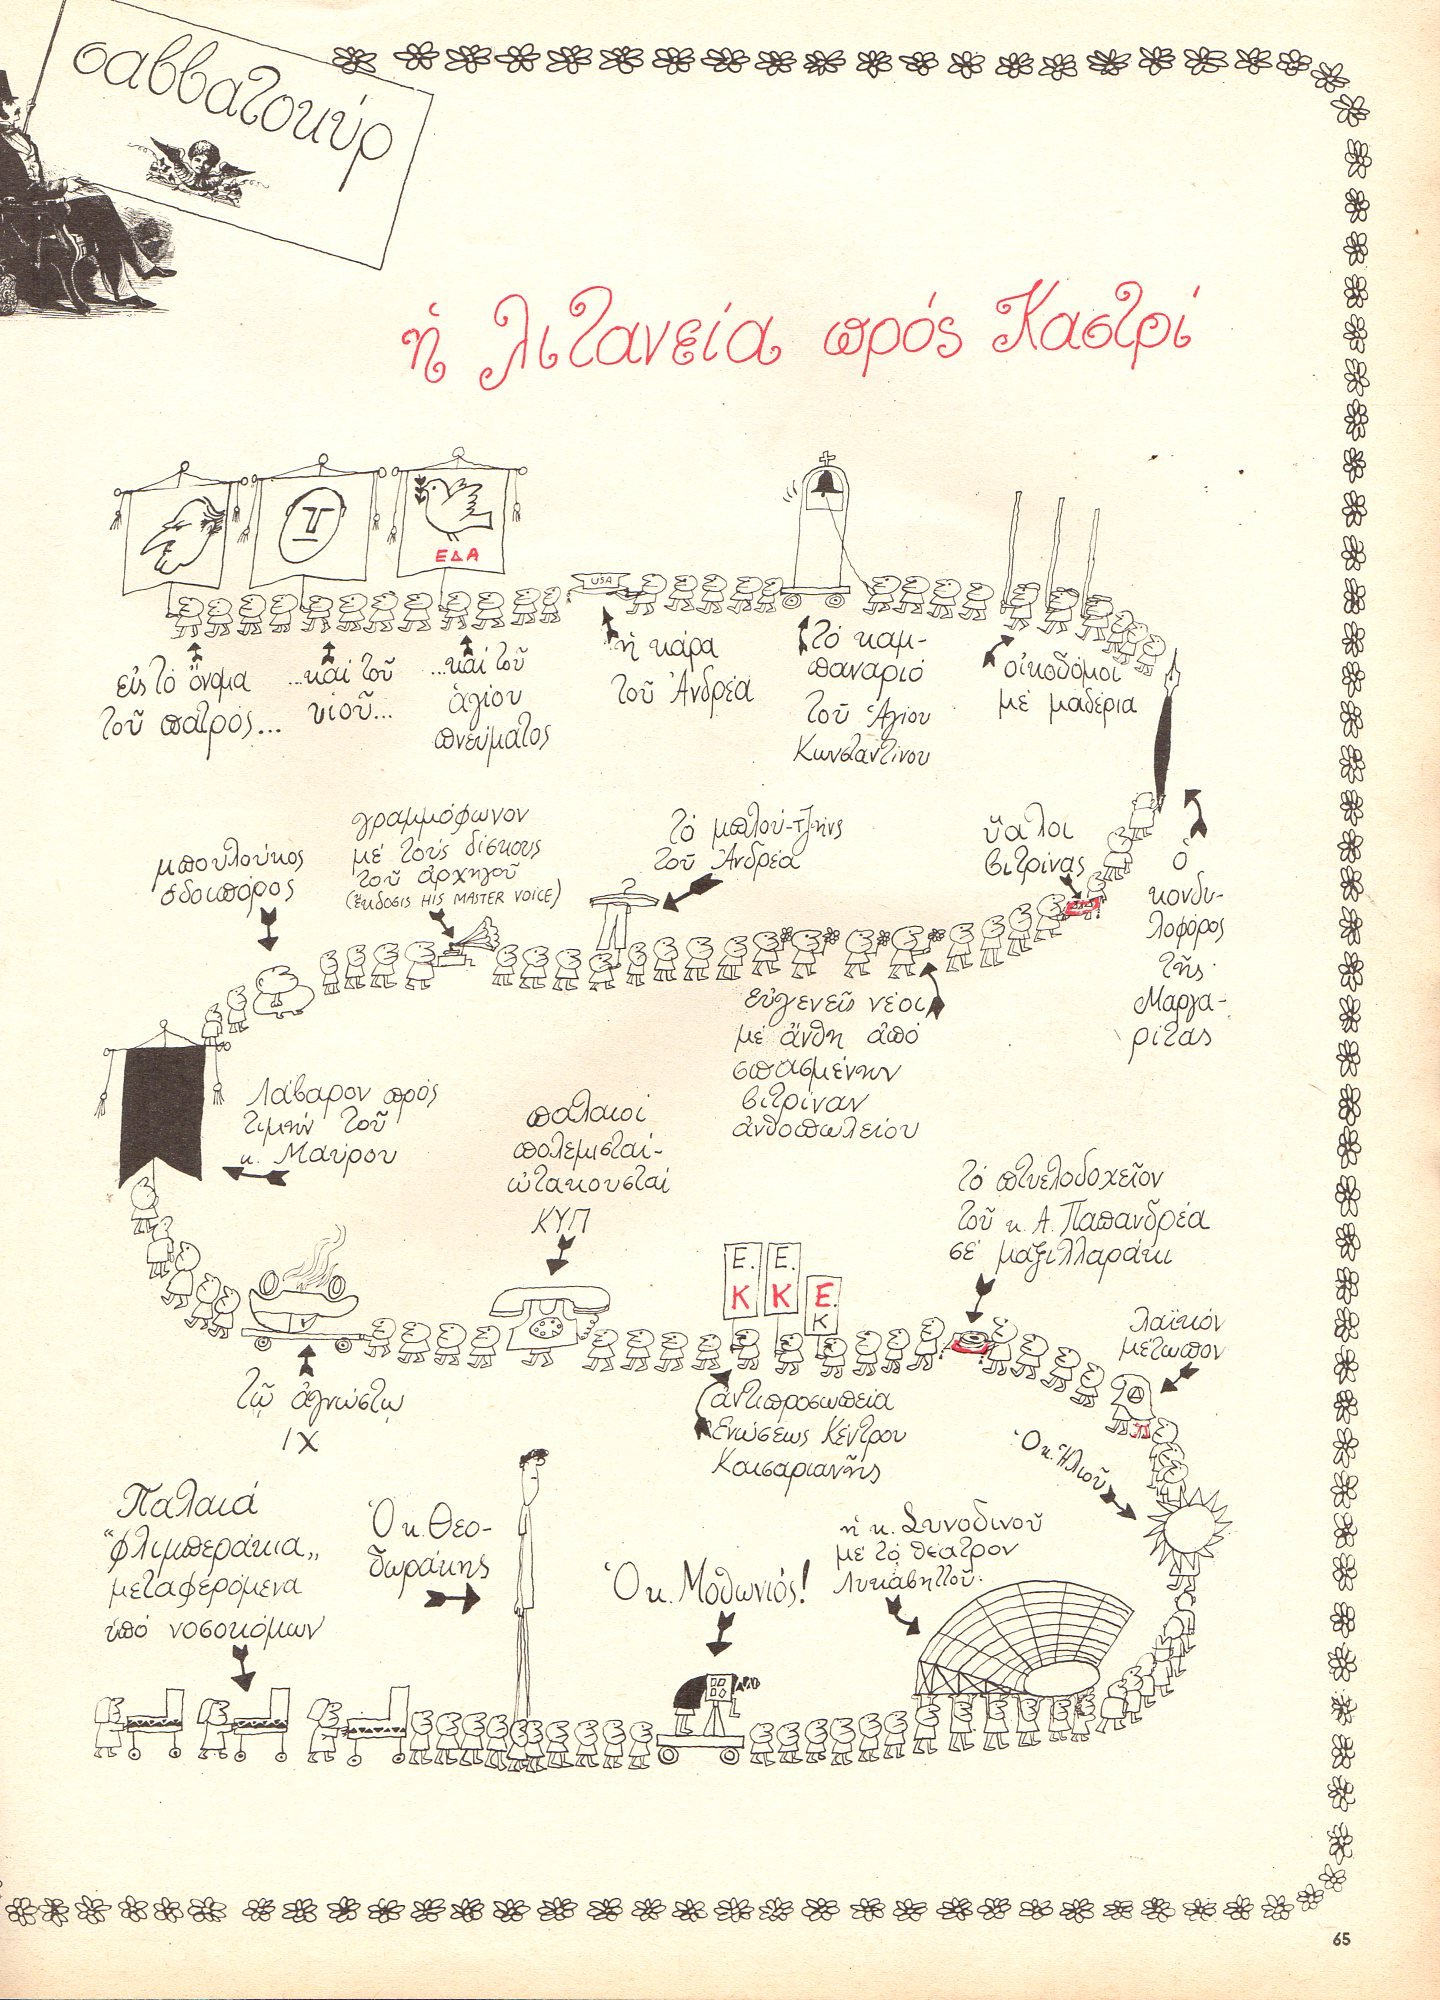 σαββατοκύρ
ἡ λιτανεία πρός Καστρί
ΕΔΑ
USA
εἰς τό ὄνομα
τοῦ πατρός...
...καί τοῦ
υἱοῦ...
...καί τοῦ
ἁγίου
πνεύματος
ἡ κάρα
τοῦ Ἀνδρέα
τό καμ-
παναριό
τοῦ Ἁγίου
Κωνσταντίνου
οἰκοδόμοι
μέ μαδέρια
ὁ
κονδυ-
λοφόρος
τῆς
Μαργα-
ρίτας
ὕαλοι
βιτρίνας
τό μπλού-τζήνς
τοῦ Ἀνδρέα
γραμμόφωνον
μέ τούς δίσκους
τοῦ ἀρχηγοῦ
(ἔκδοσις HIS MASTER VOICE)
μπουλούκος
ὁδοιπόρος
εὐγενεῖς νέοι
μέ ἄνθη ἀπό
σπασμένην
βιτρίναν
ἀνθοπωλείου
Λάβαρον πρός
τιμήν τοῦ
κ. Μαύρου
παλαιοί
πολεμισταί-
ὠτακουσταί
ΚΥΠ
τῷ ἀγνώστῳ
ΙΧ
Ε.
Κ
Ε.
Κ
Ε.
Κ
ἀντιπροσωπεία
Ἑνώσεως Κέντρου
Καισαριανῆς
τό πτυελοδοχεῖον
τοῦ κ. Α. Παπανδρέα
σέ μαξιλλαράκι
λαϊκόν
μέτωπον
Ὁ κ. Ἠλιοῦ
ἡ κ. Συνοδινοῦ
μέ τό θέατρον
Λυκαβηττοῦ.
Ὁ κ. Μοθωνιός!
Ὁ κ. Θεο-
δωράκης
Παλαιά
"φλιμπεράκια„
μεταφερόμενα
ὑπό νοσοκόμων
65